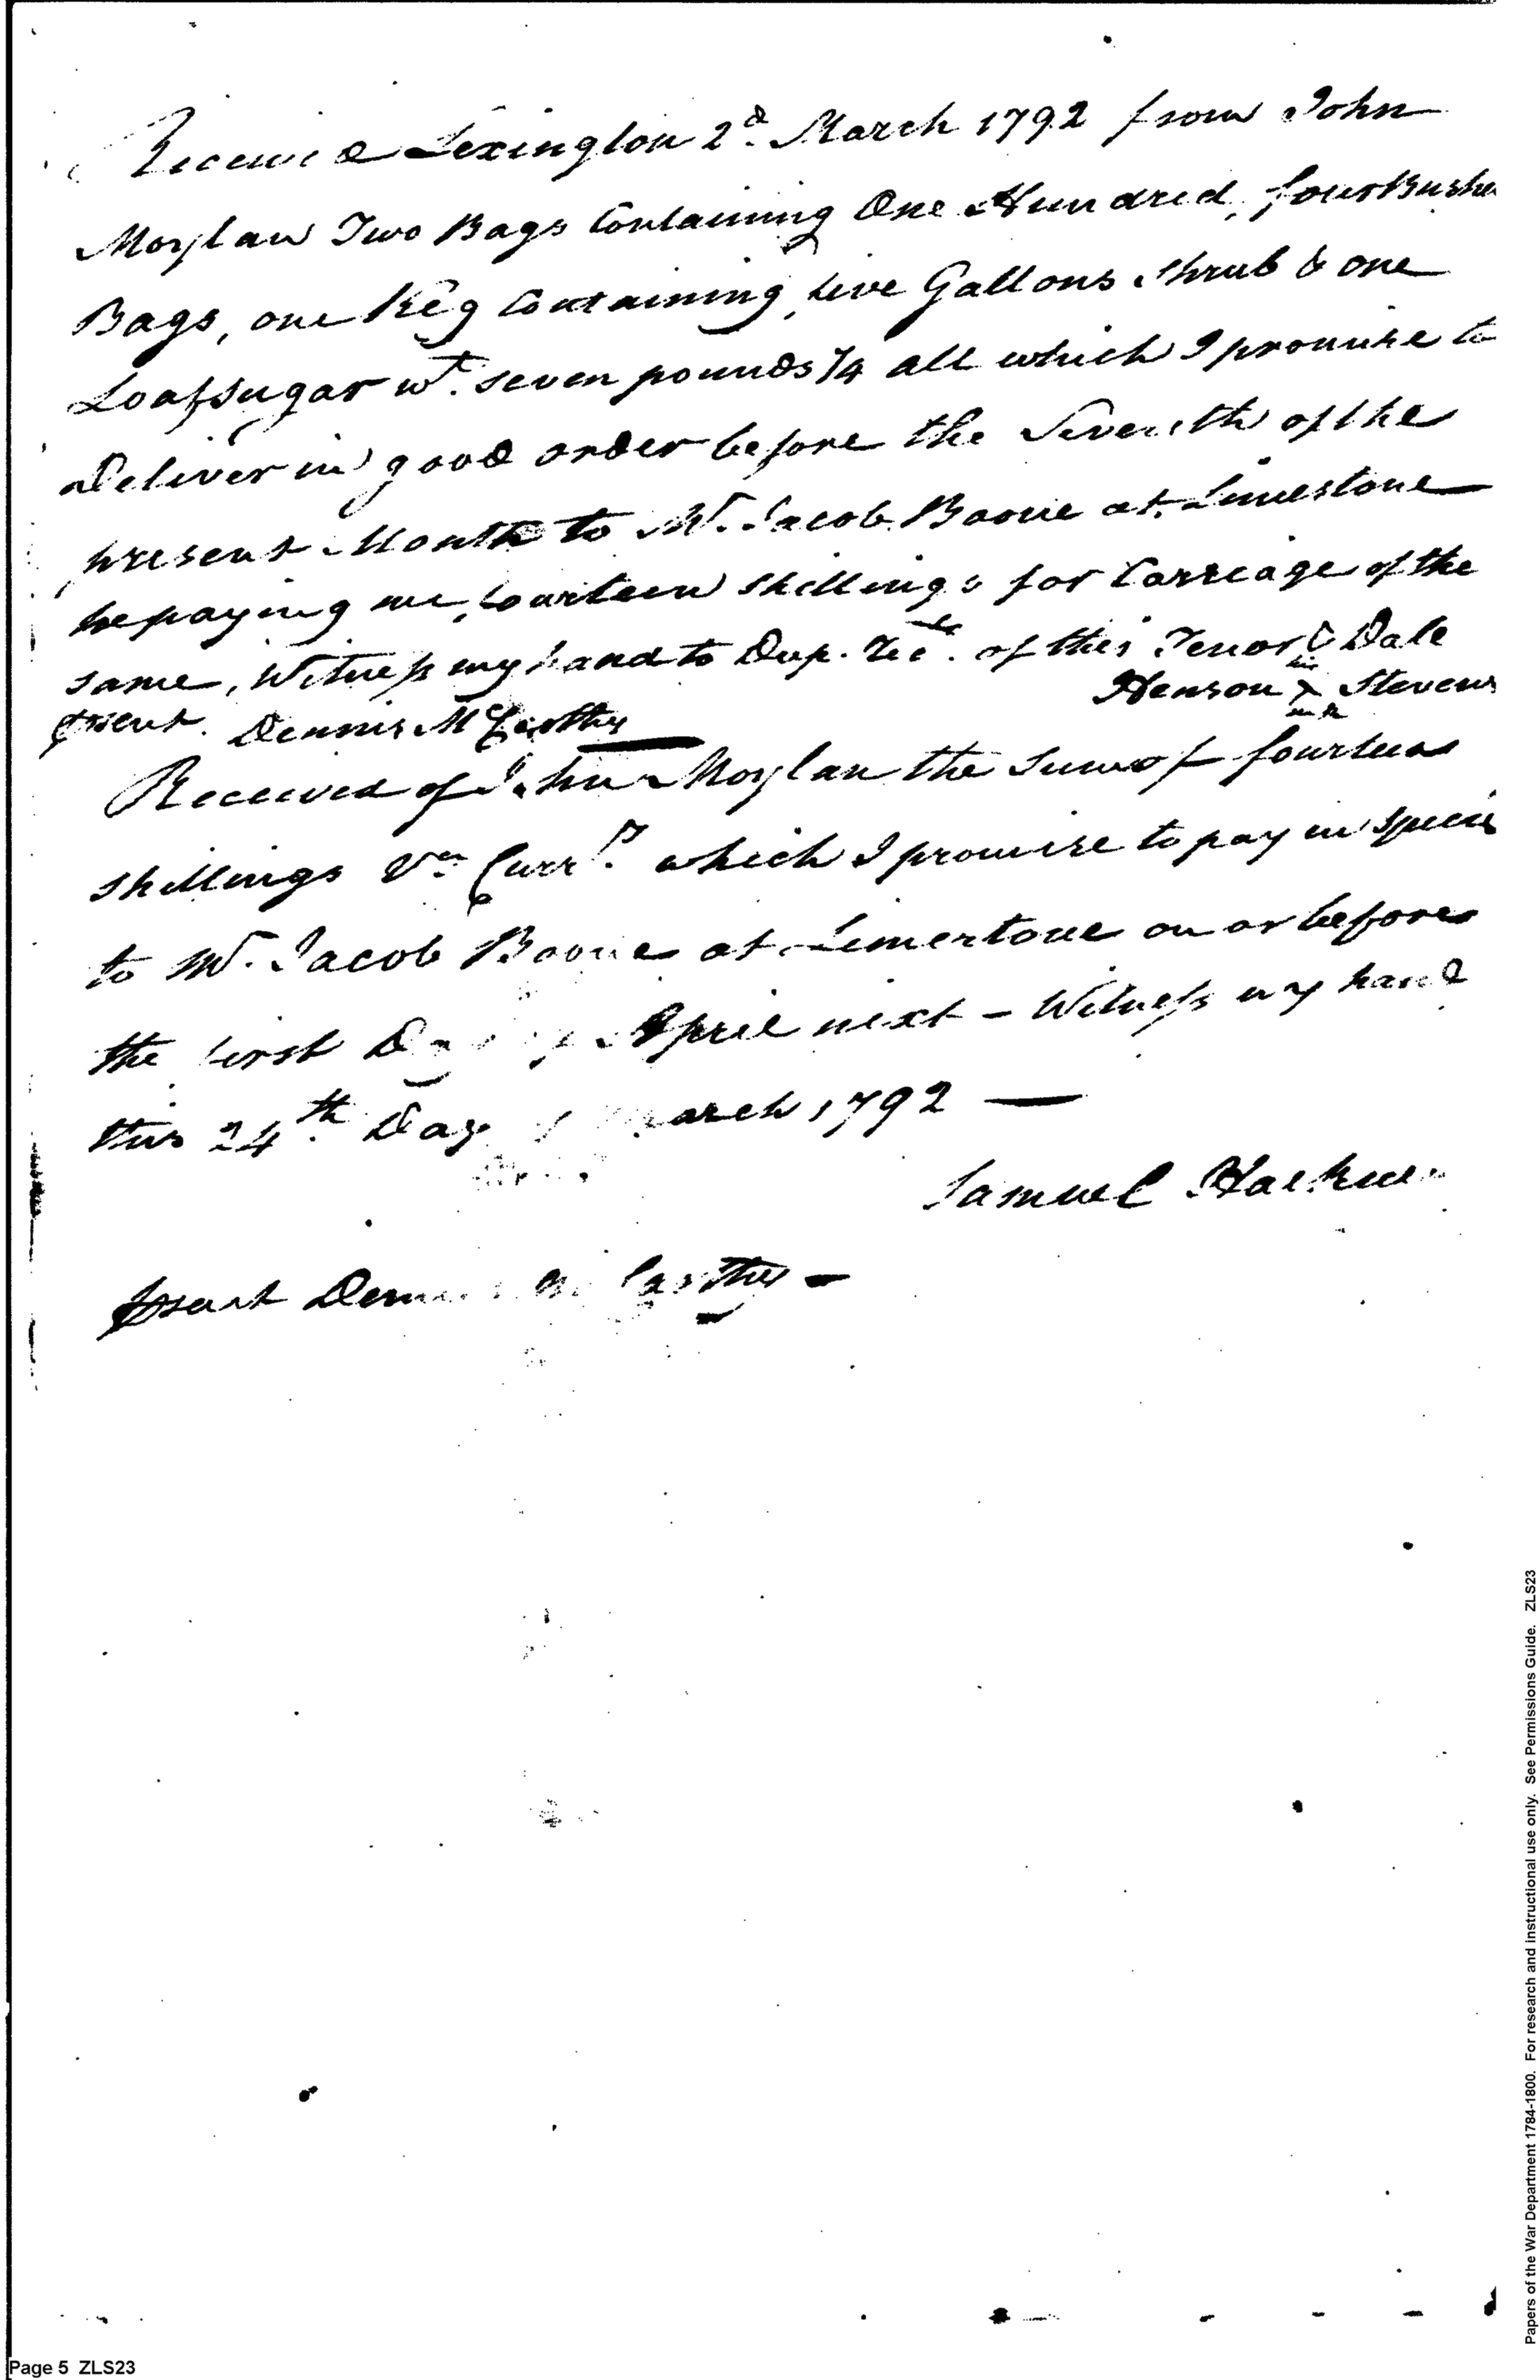 Received Lexington 2d. March 1792 from John
Moylan Two Bags Containing One Hundred, four Bushe
Bags, one Keg Containing five Gallons Shrub & one
Loaf Sugar wt. seven pounds 1/4 all which I promise to
Deliver in good order before the Seventh of the
present Month to Mr. Jacob Boone at Limestone
he paying me fourteen Shillings for Carriage of the
same, Witness my hand to Dup. Recs. of this Tenor & Date
his
Henson X Stevens
mk
present. Dennis McCarthy
Received of John Moylan the Sum of fourteen
shillings Va. Curry. which I promise to pay in specie
to Mr. Jacob Boone at Limestone on or before
the first Day of April next - Witness my hand
this 24th Day of March 1792 —
Samuel
present Dennis McCarthy -
Page 5 ZLS23
Papers of the War Department 1784-1800. For research and instructional use only. See Permissions Guide. ZLS23